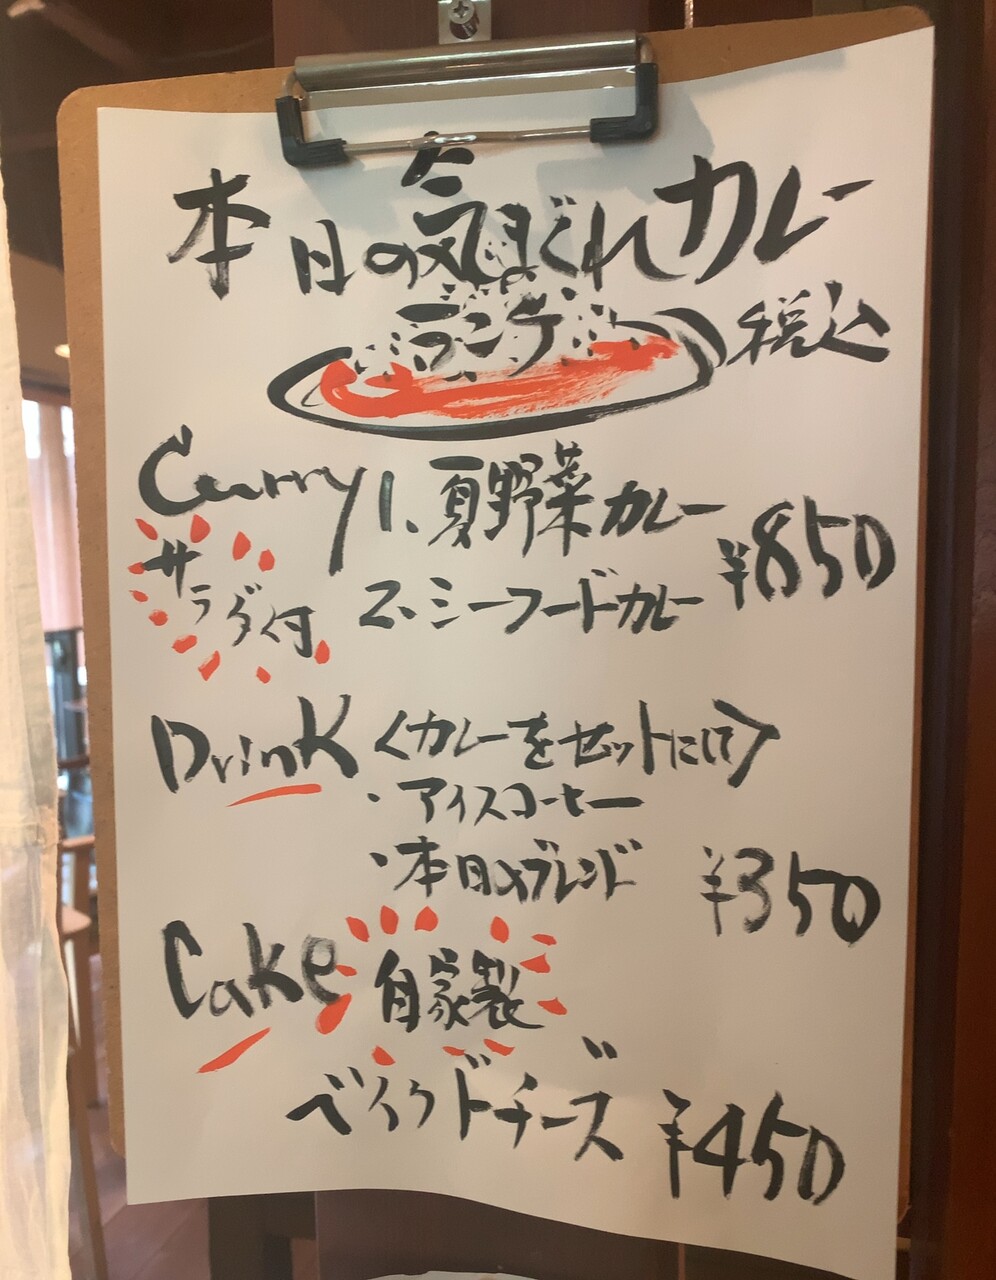 本日の気まぐれカレー
ランチ
税込
Curry 1. 夏野菜カレー
サラダ付
2. シーフードカレー ¥850
Drink <カレーをセットに
・アイスコーヒー
・本日のブレンド ¥350
Cake 自家製
ベイクドチーズ ¥450